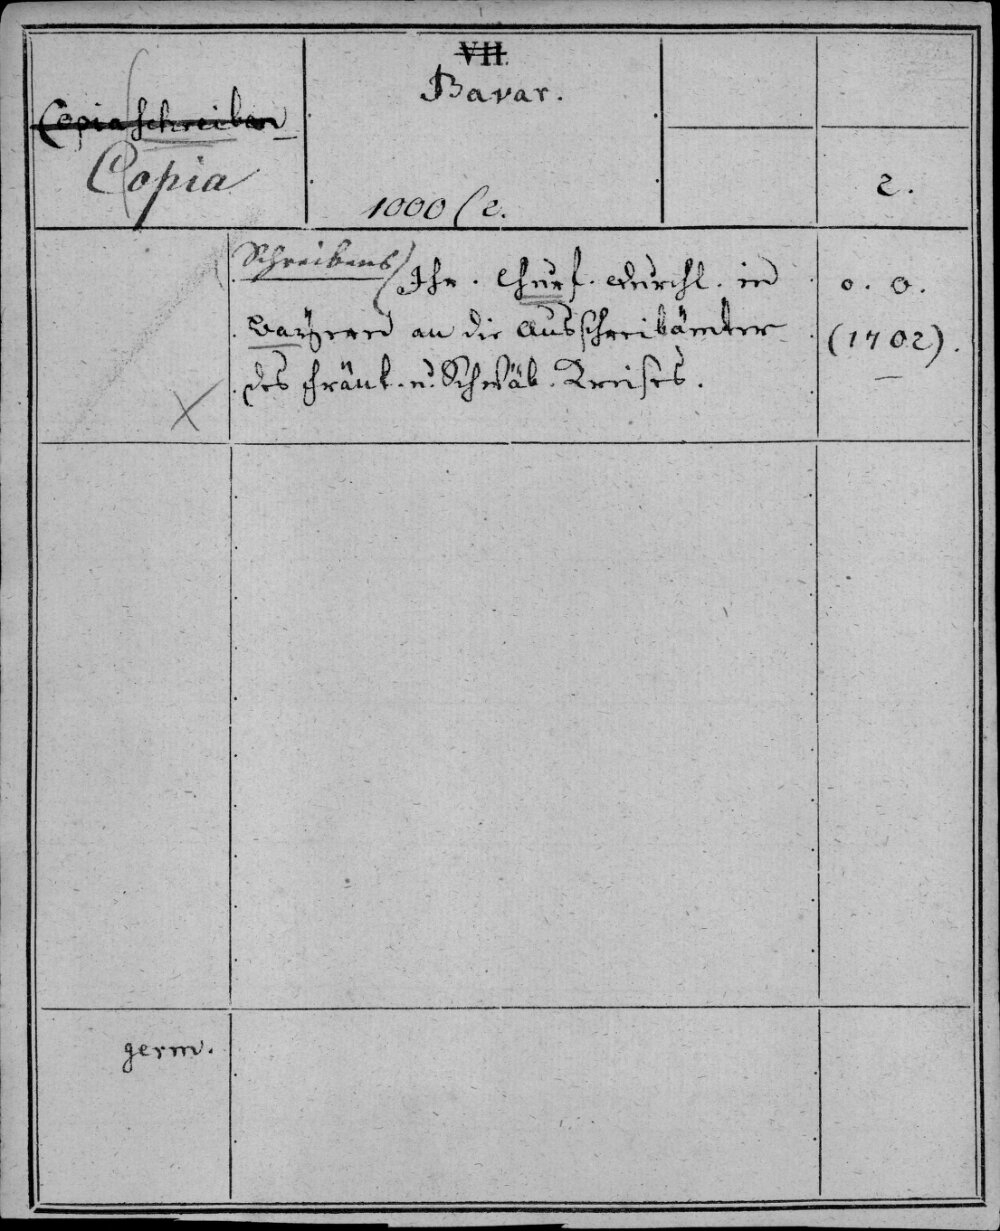 VII.
Bavar.
Copia schreiben
Copia
1000 (2.
2.
Schreibens Ihr. Churf. Durchl. in
Bayern an die Ausschreibämter
des fränk. u. Schwäb. Kreises.
o. O.
(1702).
germ.